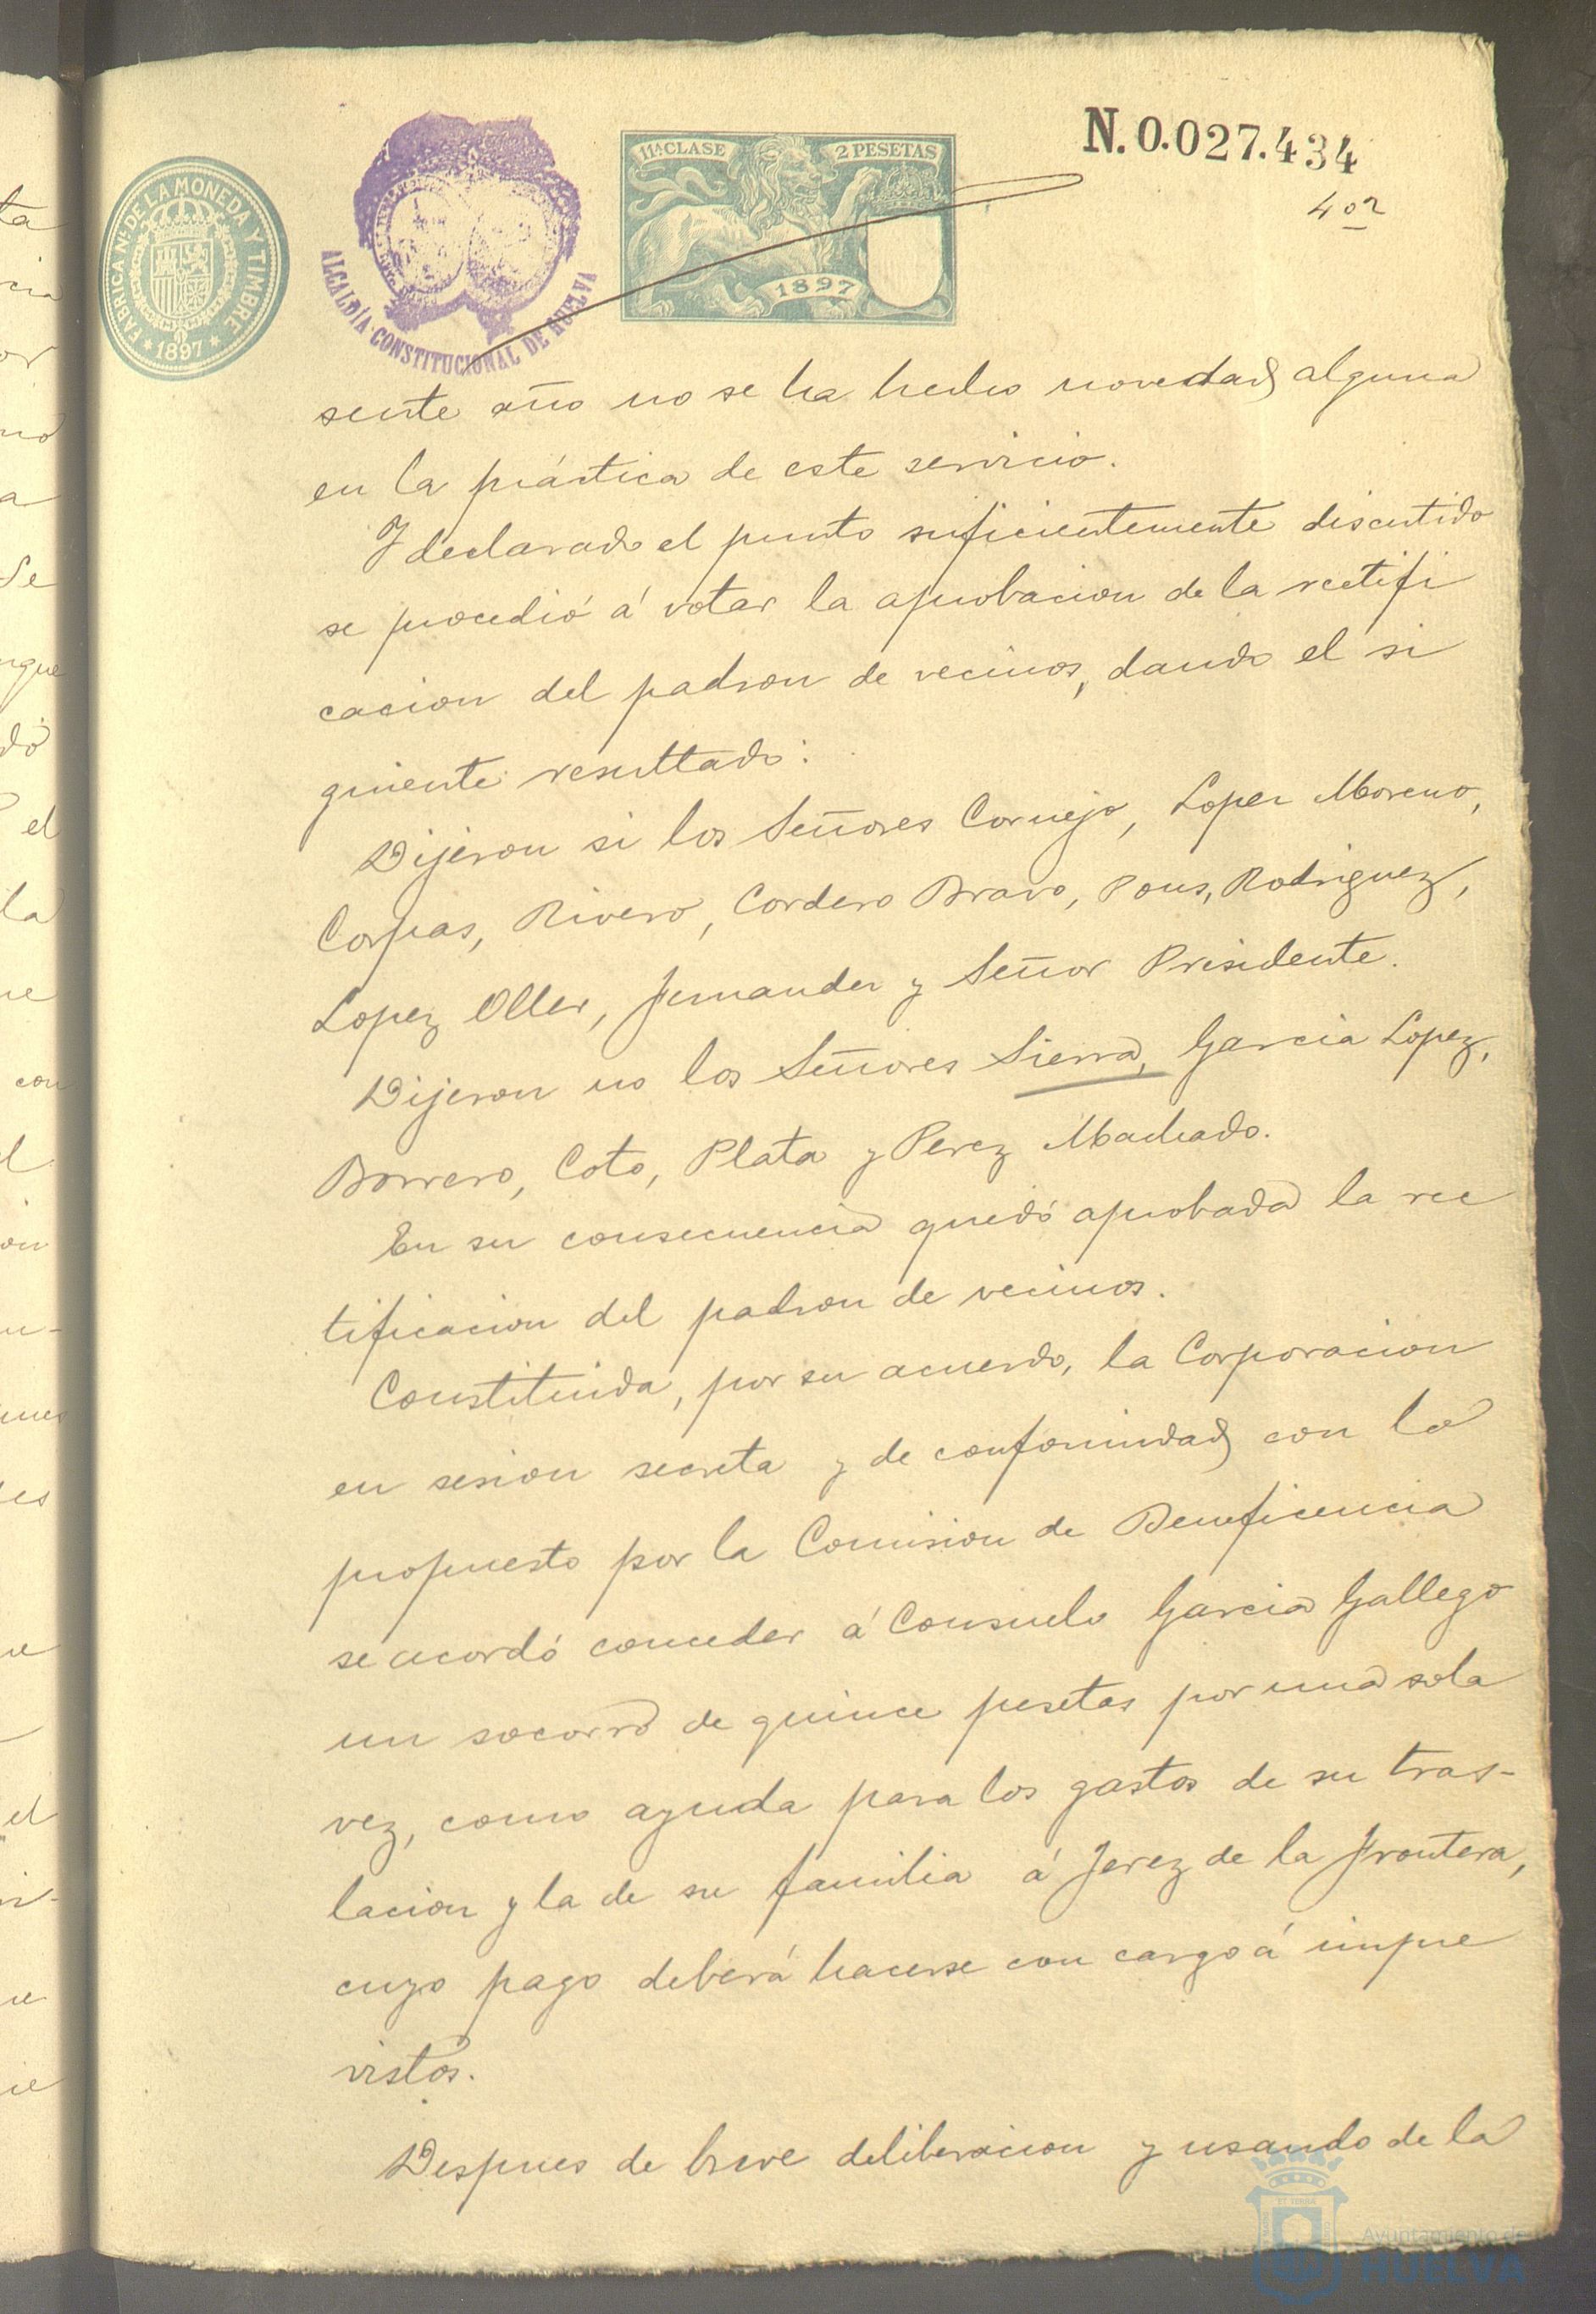 N.0.027.434
40
11ª CLASE 2 PESETAS
1897
FABRICA Nˡ DE LA MONEDA Y TIMBRE
* 1897 *
ALCALDÍA CONSTITUCIONAL DE HUELVA
sente año no se ha hecho novedad alguna
en la práctica de este servicio.
Y declarado el punto suficientemente discutido
se procedió á votar la aprobacion de la rectifi
cacion del padron de vecinos, dando el si
guiente resultado:
Dijeron si los Señores Cornejo, Lopez Moreno,
Corpas, Rivero, Cordero Bravo, Pons, Rodriguez,
Lopez Oller, Fernandez y Señor Presidente.
Dijeron no los Señores Sierra, Garcia Lopez,
Borrero, Coto, Plata y Perez Machado.
En su consecuencia quedó aprobada la rec
tificacion del padron de vecinos.
Constituida, por su acuerdo, la Corporacion
en sesion secreta y de conformidad con lo
propuesto por la Comision de Beneficencia
se acordó conceder á Consuelo Garcia Gallego
un socorro de quince pesetas por una sola
vez, como ayuda para los gastos de su tras-
lacion y la de su familia á Jerez de la Frontera,
cuyo pago deberá hacerse con cargo á impre
vistos.
Despues de breve deliberacion y usando de la
Ayuntamiento de
HUELVA